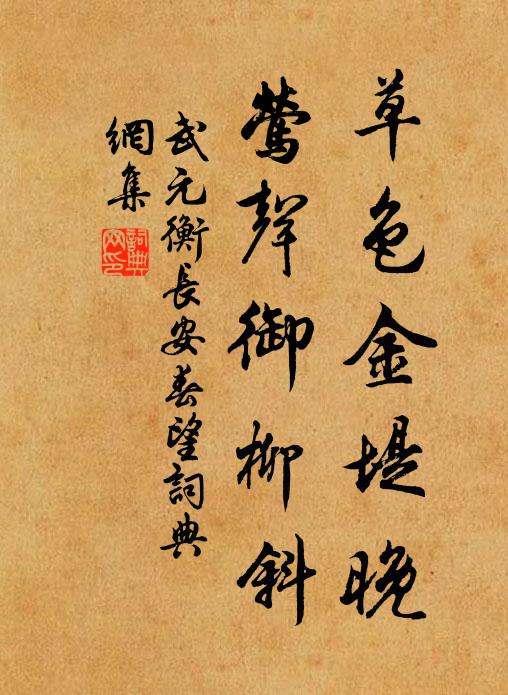 草色金堤晚
鶯聲御柳斜
武元衡長安春望詞典
網集
詞典
网印